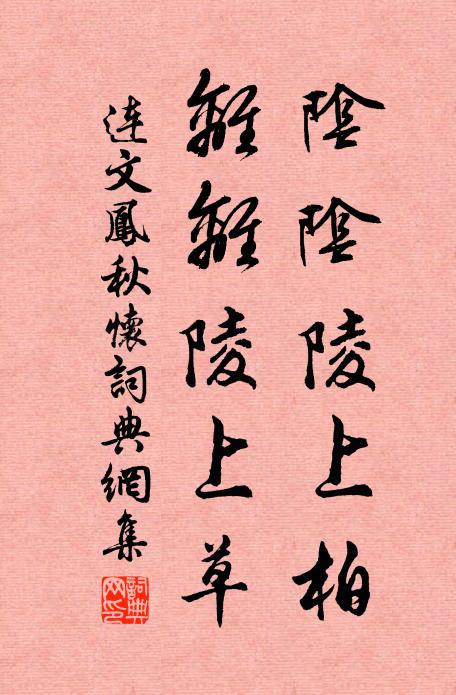 陰陰陵上柏
離離陵上草
連文鳳秋懷詞典網集
詞典網印